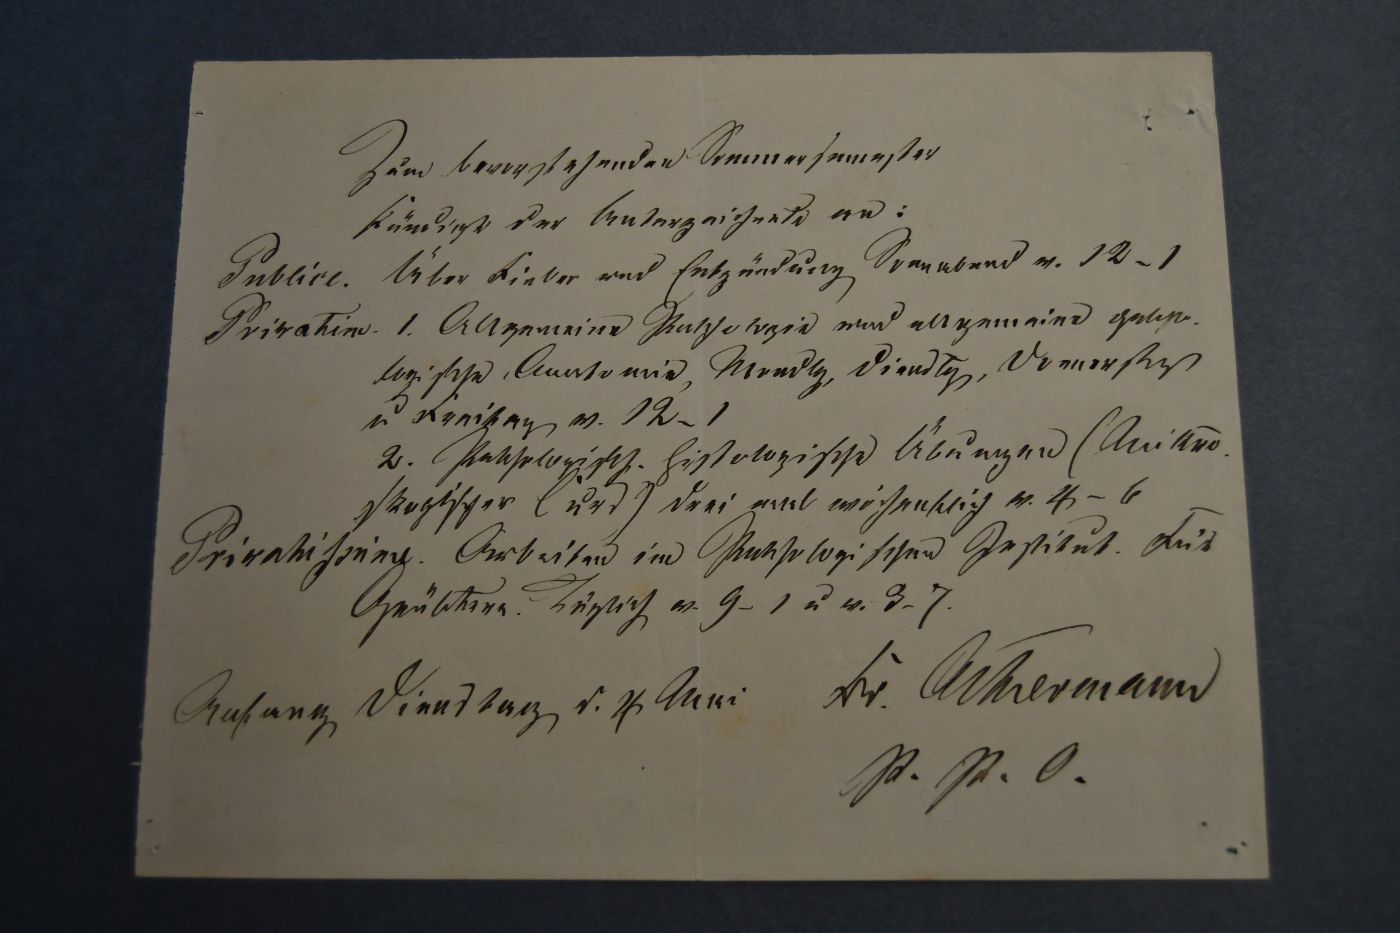 Zum bevorstehenden Sommersemester
kündigt der Unterzeichnete an:
Publice. Über Fieber und Entzündung Sonnabend v. 12-1
Privatim. 1. Allgemeine Pathologie und allgemeine patho-
logische Anatomie, Montag, Dienstag, Donnerstag
u Freitag v. 12-1
2. Pathologisch-histologische Übungen (Mikro-
skopischer Curs) drei mal wöchentlich v. 4-6
Privatissime. Arbeiten im Pathologischen Institut. Für
Geübtere. Täglich v. 9-1 u v. 3-7.
Anfang Dienstag d. 4 Mai
Ackermann
P. P. O.